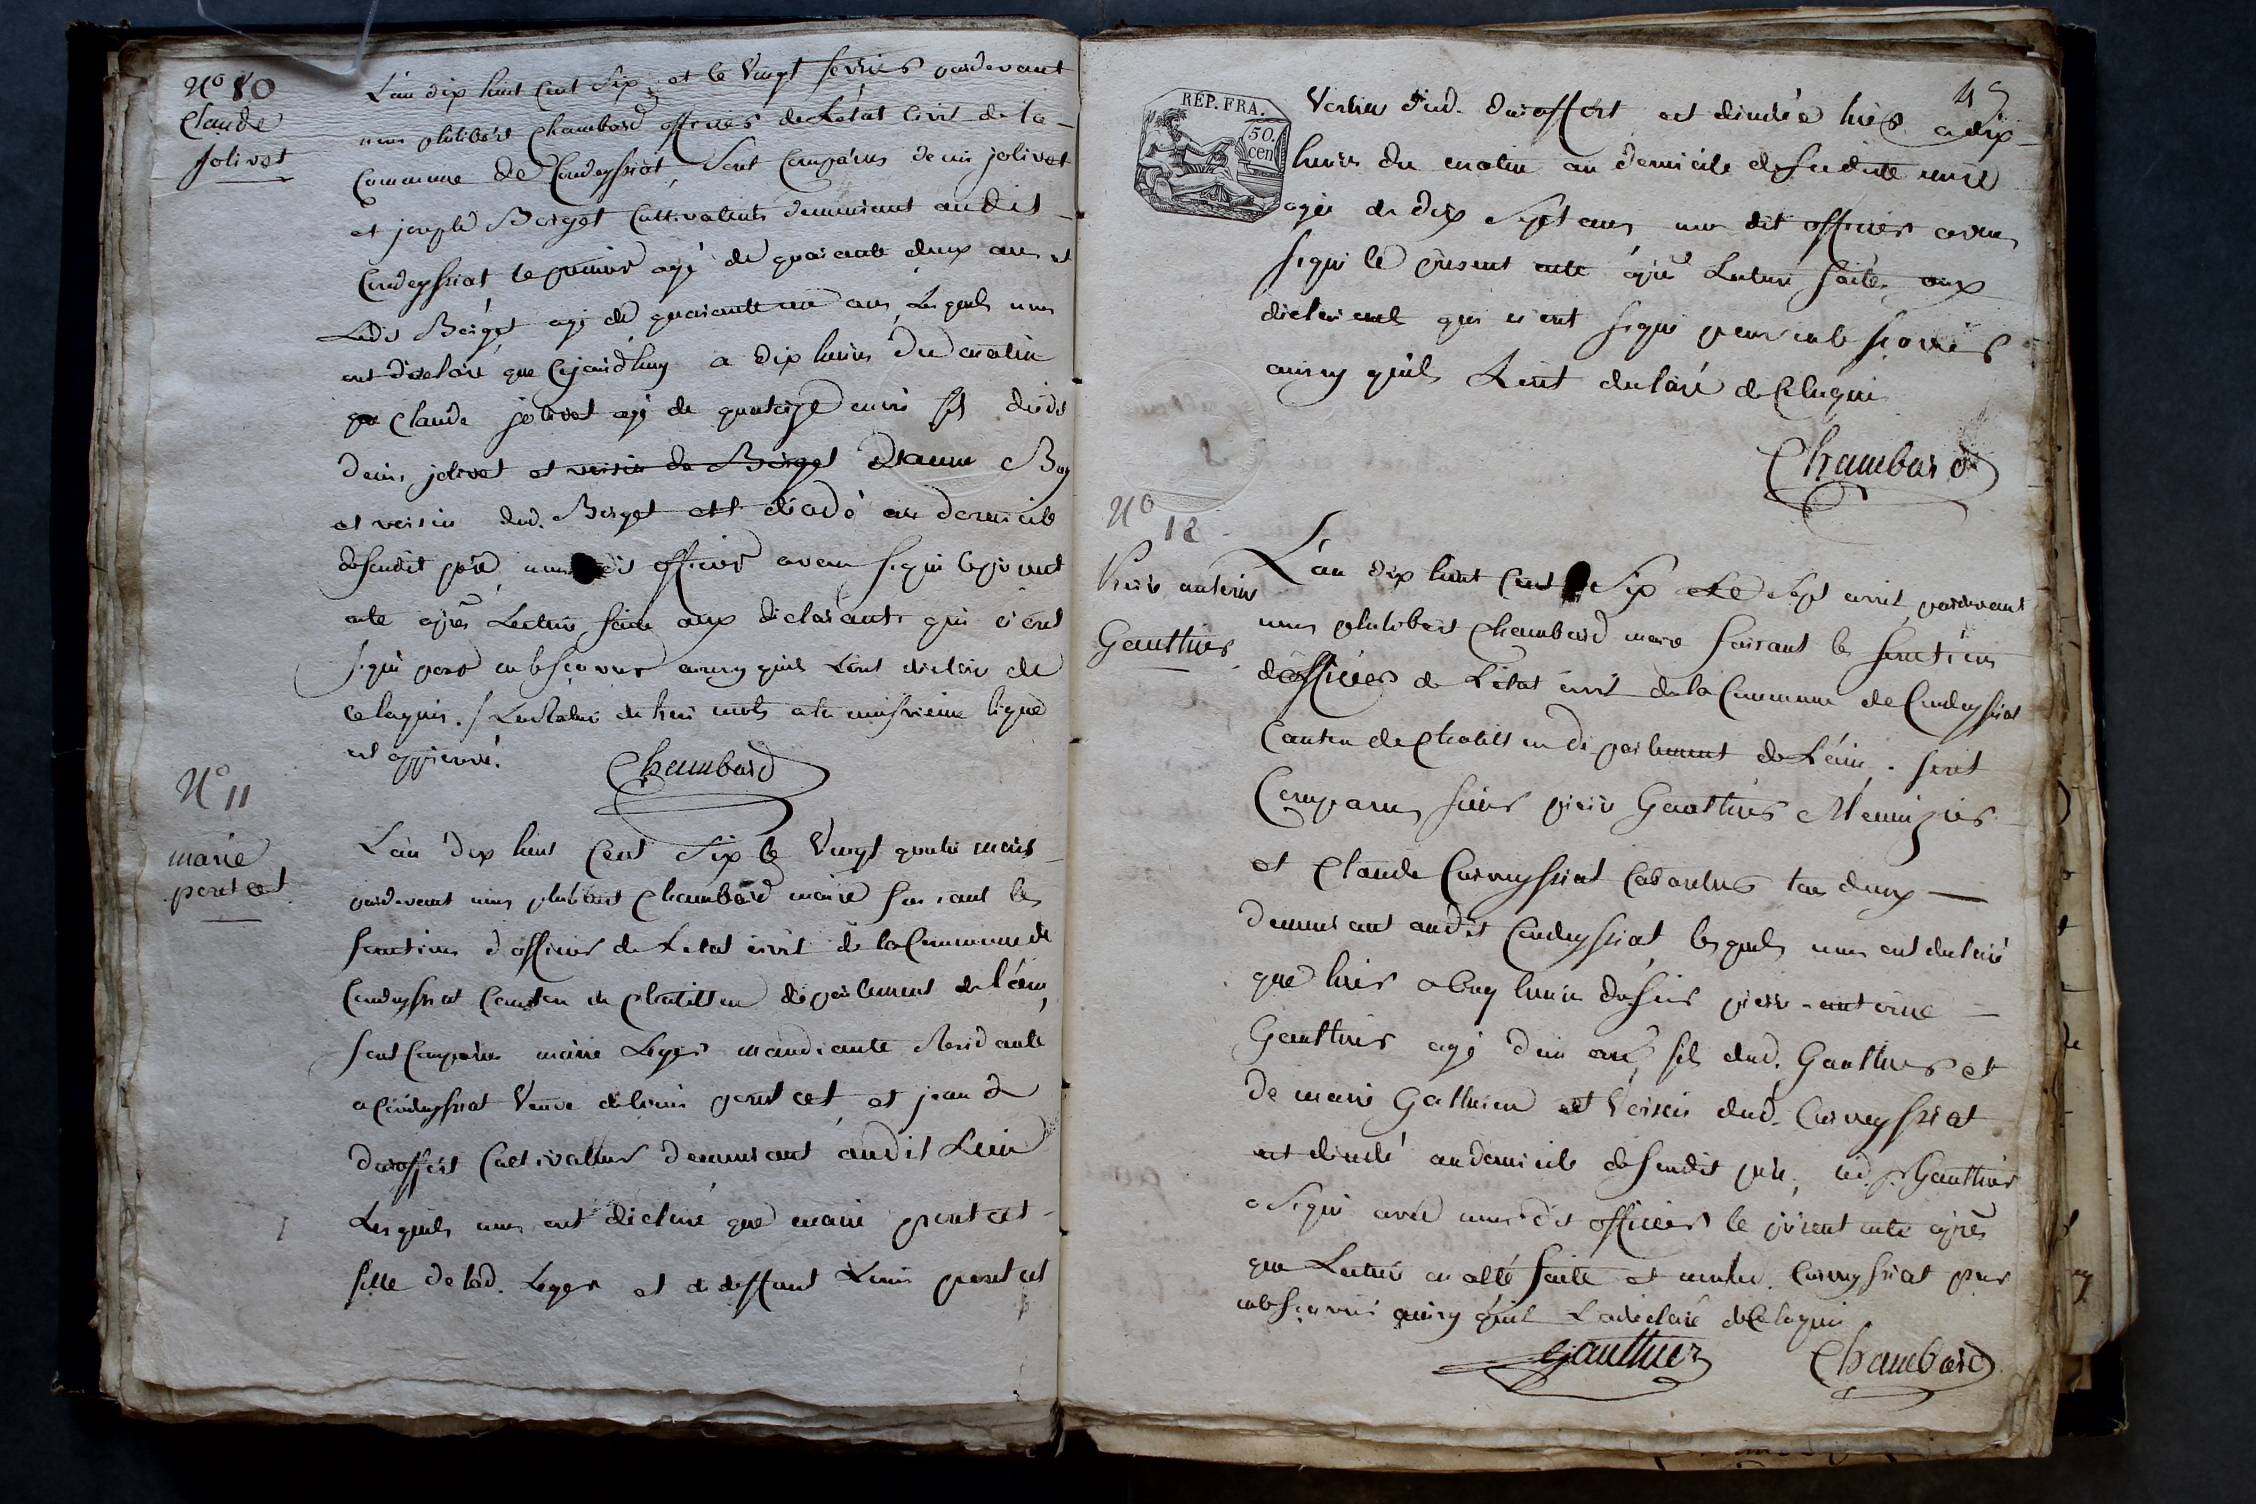 N° 10
Claude
Jolivet
L'an dix huit cent Six et le vingt fevrier pardevant
nous philibert Chambard officier de L'état Civil de la
Commune de Condeyssiat, Sont Comparus denis jolivet
et joseph Berget Cultivateurs demeurant audit
Condeyssiat le premier agé de quarante deux ans et
Ledit Berget agé de quarante un ans, Lesquels nous
ont déclaré que Cejourdhuy a dix heures du matin
que Claude jolivet agé de quatorze ans fils dudit
denis jolivet et voisin de Berget et anne Bey
et voisin dud. Berget est décédé au domicile
desondit père, nous dit officier avons signé leprésent
acte après Lecture faite aux déclarants qui n'ont
signé pour ne le sçavoir ainsy quils L'ont déclaré de
celaquis. / La Rature de huit mots a la neufvieme ligne
est approuvé.
Chambard
N° 11
marie
pontcet
L'an dix huit Cent Six le Vingt quatre mars
pardevant nous philibert Chambard maire faisant les
fonctions d'officier de Letat civil de la Commune de
Condeyssiat Canton de Chatillon département de l'ain,
sont Comparus marie Leger mandiante Residante
a Condeyssiat Veuve de Louis pontcet et jean
duroffert Cultivateur demeurant audit Lieu
Lesquels nous ont déclaré que marie pontcet
fille de lad. Leger et de deffunt Louis pontcet
45
REP. FRA.
50.
cen
Voisin dud. duroffert est décédée hier a dix
heures du matin au domicile desadite mere
agée de dix Sept ans nous dit officier avons
signé le présent acte après Lecture faite aux
déclarants qui n'ont signé pour ne le sçavoir
ainsy quils L'ont déclaré de Celaquis
Chambard
N°
12
Pierre antoine
Gauthier
L'an dix huit Cent Six et Le Sept avril pardevant
nous philibert Chambard maire faisant les fonctions
d'officier de L'état civil de la Commune de Condeyssiat
Canton de Chatillon département de L'ain. sont
Comparus Sieurs pierre Gauthier Menuizier
et Claude Curveyssiat Cabartier tous deux
demeurant audit Condeyssiat, lesquels nous ont déclaré
que hier a Cinq heures du soir pierre-antoine
Gauthier agé d'un an, fils dud. Gauthier et
de marie Gathier et Voisin dud. Curveyssiat
est décédé audomicile desondit père, led. Gauthier
a Signé avec nous dit officier le présent acte après
que Lecture en a été faite et nonled. Curveyssiat pour
nele sçavoir ainsy quil L'a déclaré deCelaquis
Gauthier
Chambard